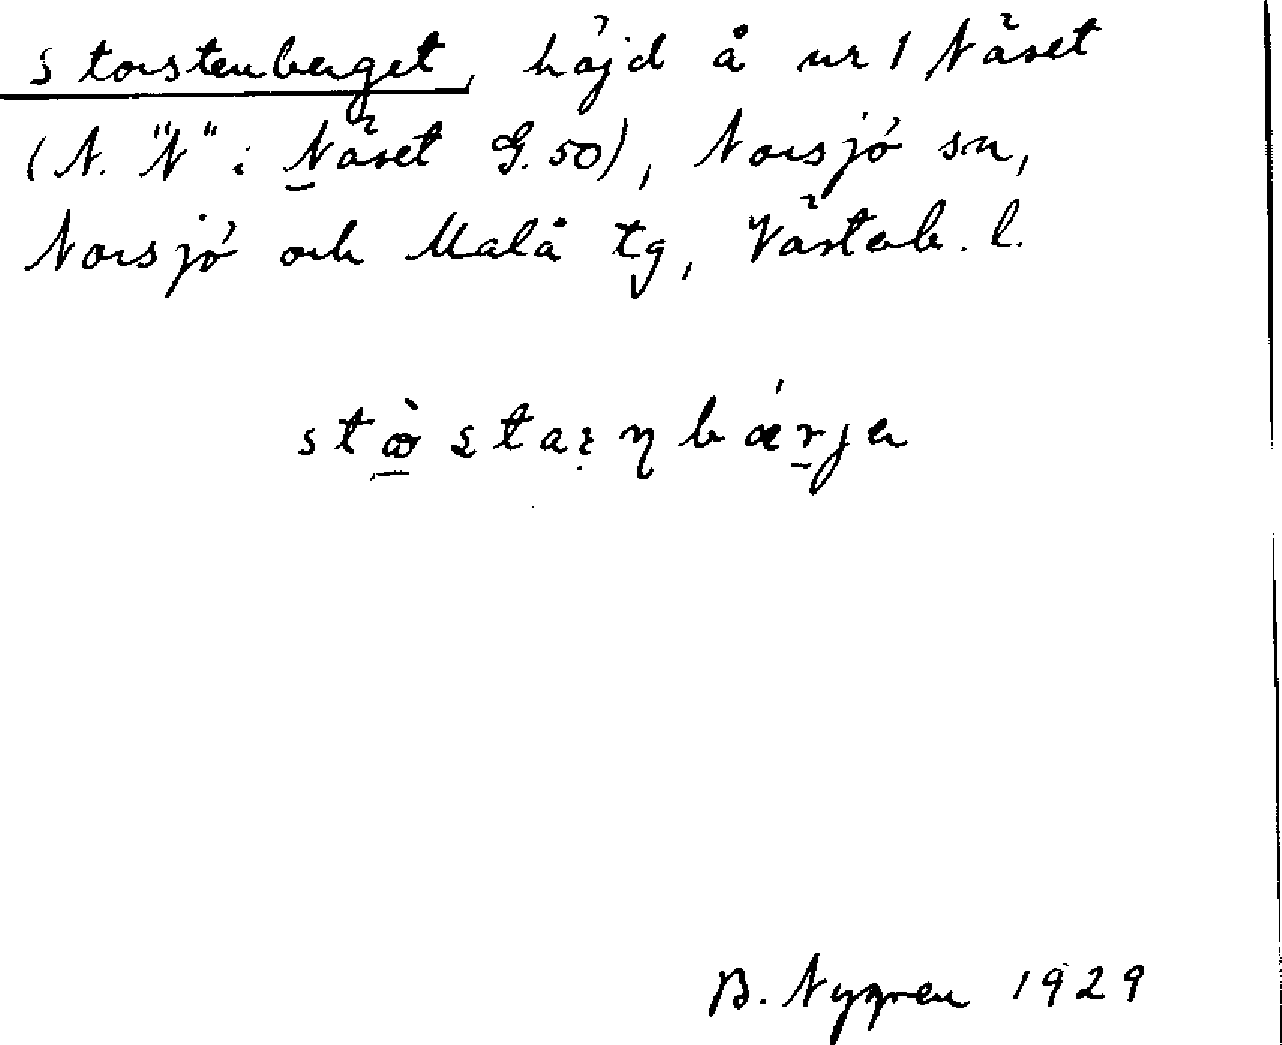 Storstenberget, höjd å nr 1 Näset
(N. "N" i Näset G. 50), Norsjö sn,
Norsjö och Malå tg, Västerb. l.
B. Nygren 1929